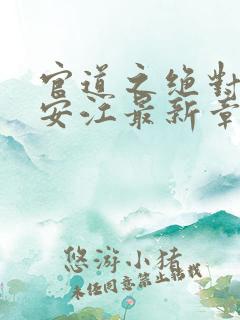 官道之绝對
安江最新章
悠游小猪
未经同意禁止转载